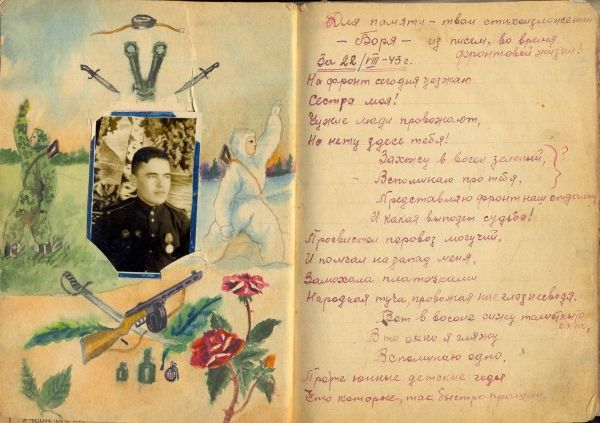 Для памяти - твои стихоизложении
- Боря - из писем, во время
фронтовой жизни!
За 22/VIII-43г.
На фронт сегодня уезжаю
Сестра моя!
Чужие люди провожают,
Но нету здесь тебя!
Захожу в вагон зеленый,
Вспоминаю про тебя,
Представляю фронт наш отдалён
И какая выпадет судьба!
Просвистел паровоз могучий,
И помчал на запад меня,
Замахала платочками
Народная туча, провожая нас глаз несводя.
Вот в вагоне сижу
окно,
В то окно я гляжу
Вспоминаю одно,
Про те юнные детские года
Что которые, так быстро прошли.